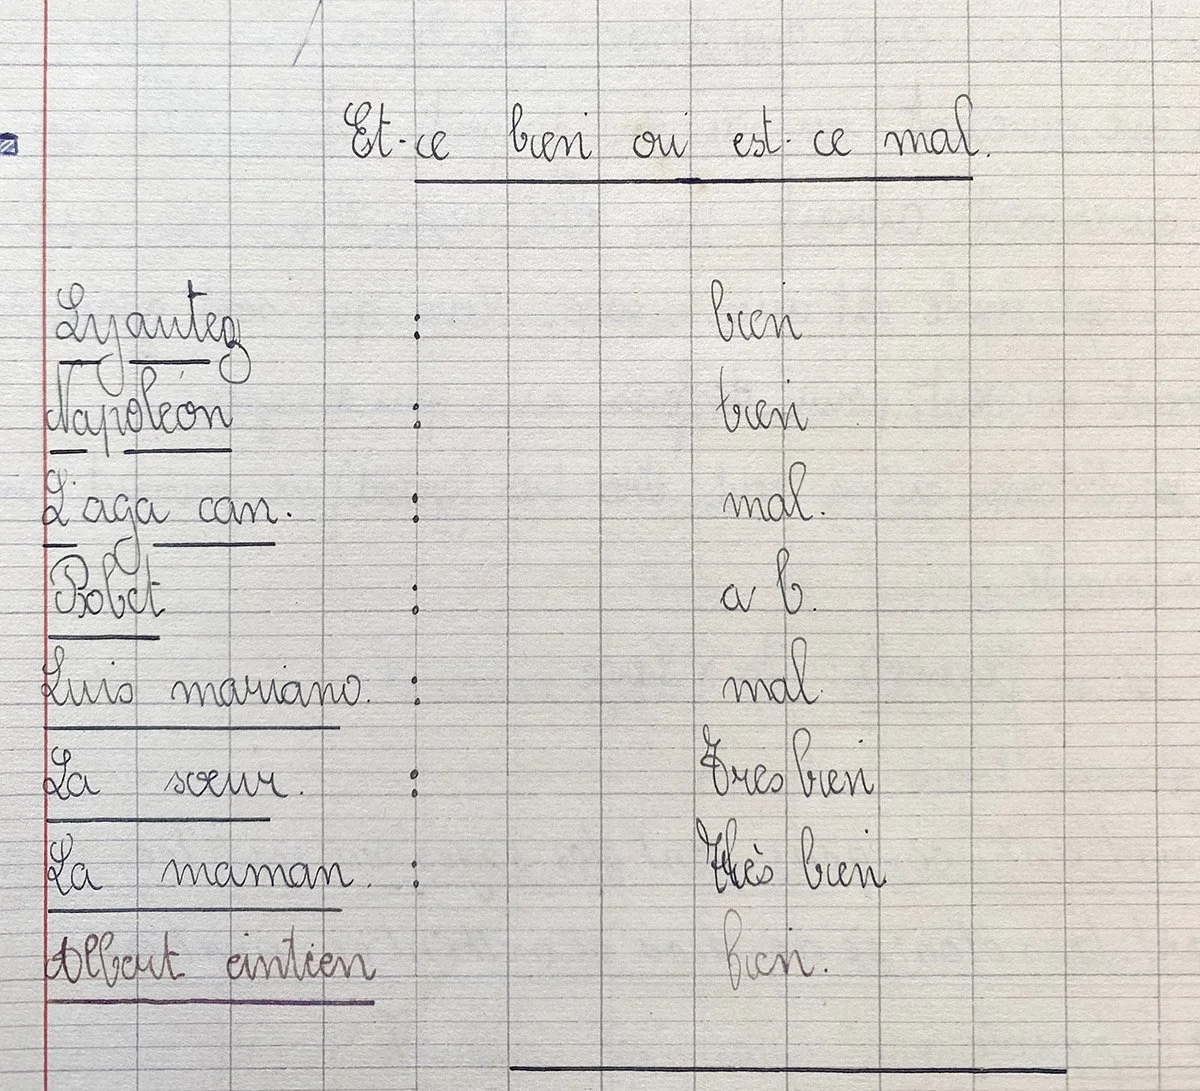 Et-ce bien ou est-ce mal.
Lyautey : bien
Napoléon : bien
L'aga can. : mal.
Bobet : a b.
Luis mariano. : mal.
La sœur. : Très bien
La maman. : Très bien
Albert eintien bien.